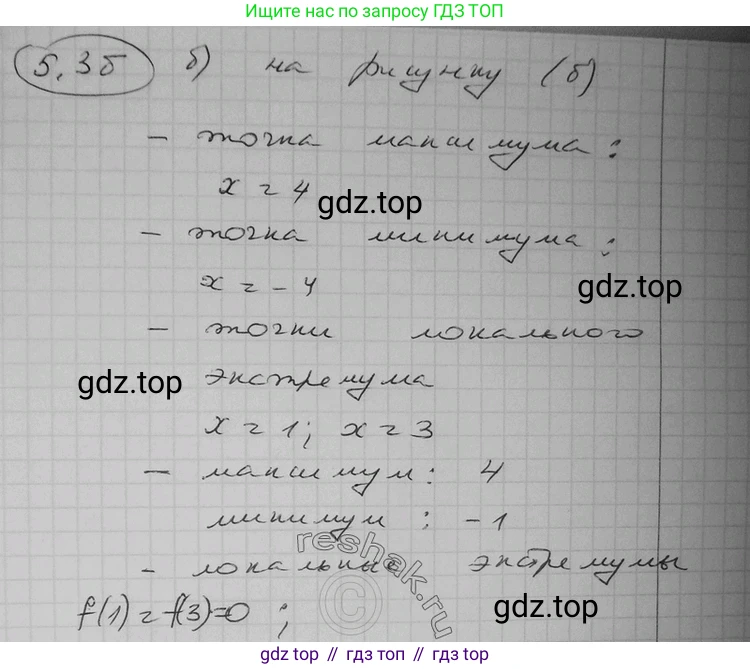 Ищите нас по запросу ГДЗ ТОП
5.3б б) на рисунку (б)
- точка максимума:
x = 4
gdz.top
- точка минимума:
x = -4
gdz.top
- точки локального
gdz.top
экстремума
x = 1; x = 3
- максимум: 4
минимум: -1
reshak.ru
©
- локальные экстремумы
f(1) = f(3) = 0 ;
gdz.top
gdz.top // гдз.топ // гдз.top